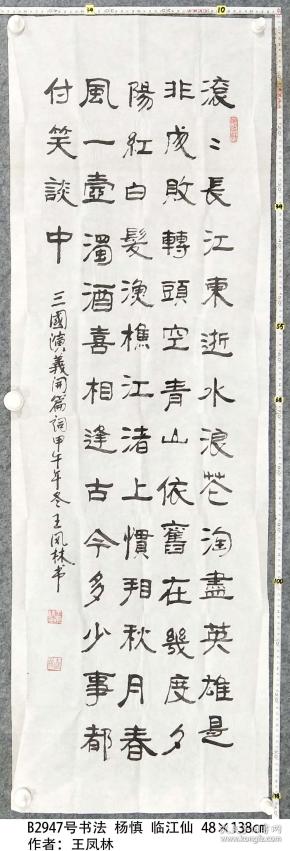 滾〻長江東逝水浪花淘盡英雄是
非成敗轉頭空青山依舊在幾度夕
陽紅白髮漁樵江渚上慣看秋月春
風一壺濁酒喜相逢古今多少事都
付笑談中
三國演義開篇詞甲午年冬王凤林书
B2947号书法 杨慎 临江仙 48×138cm
作者：王凤林